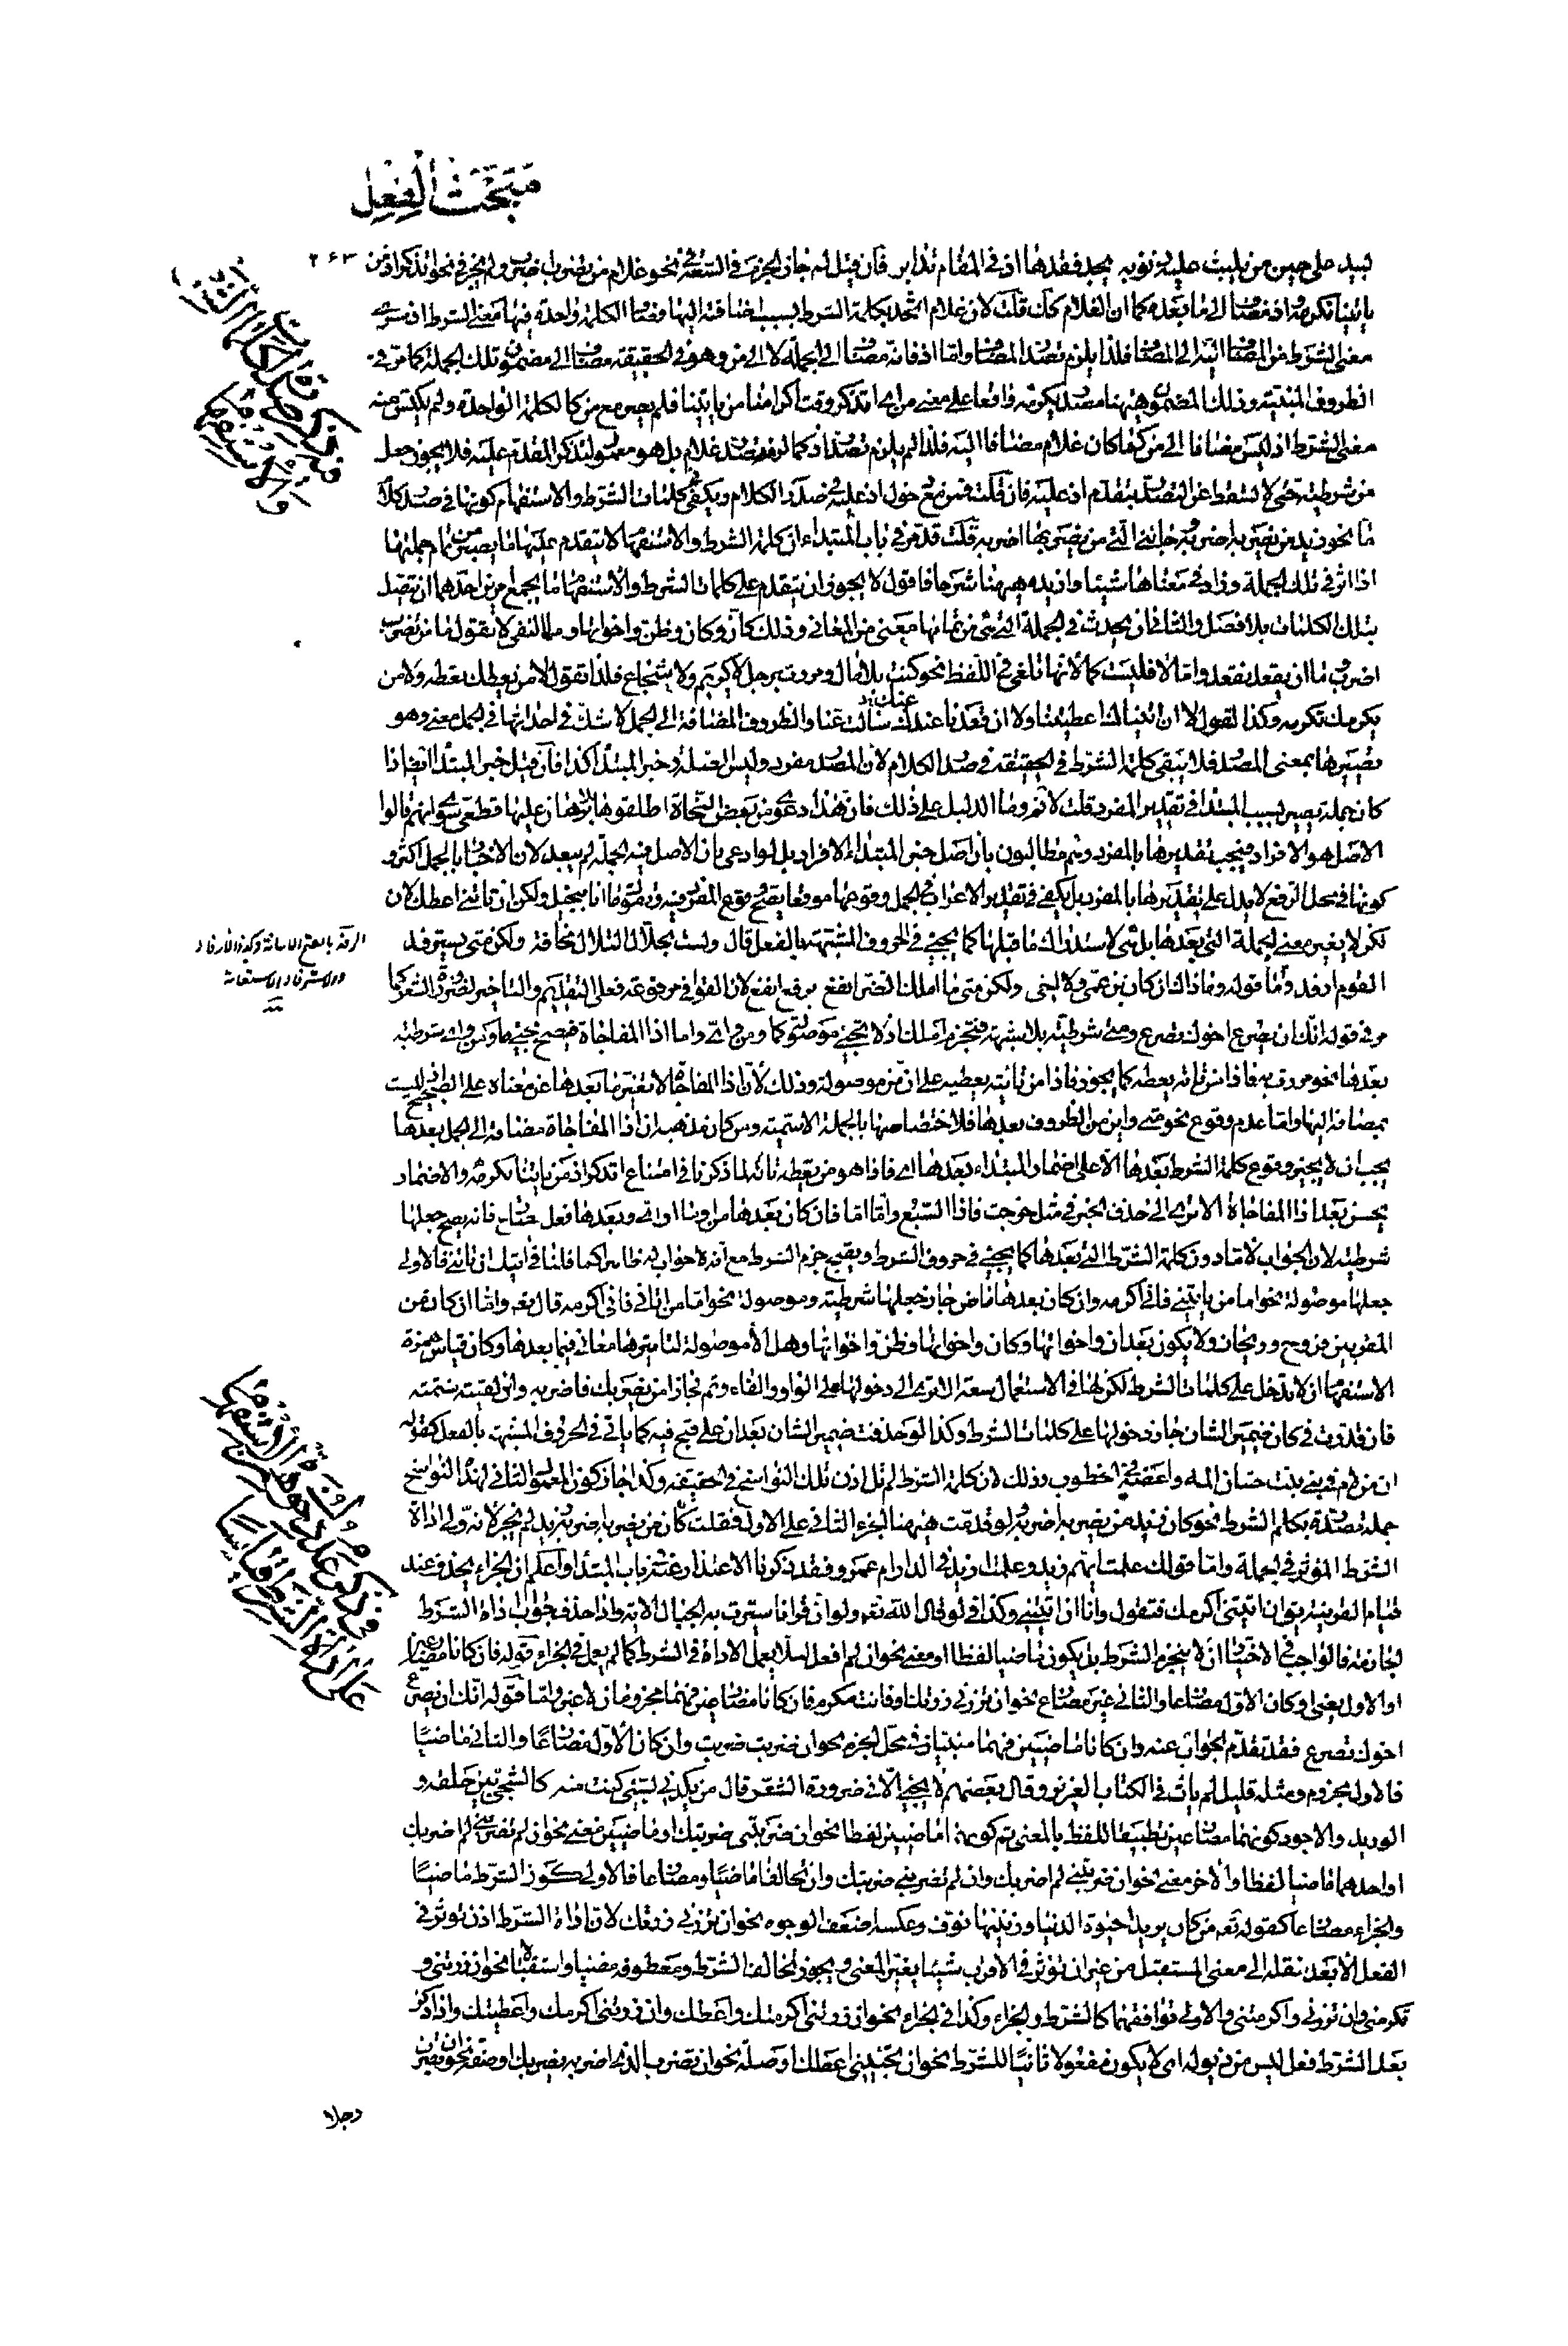 مبحث الفعل
٢٦٣
لبيد على حين من يلبث عليه ذنوبه يجد فقدها اذ في المقام تدابر فان قيل لم جاز الجزم في السعة في نحو غلام من تضرب اضرب ولم يجز في نحو اتذكر اذ من
ياتينا نكرمه واذ مضاف الى ما بعده كما ان الغلام كك قلت لان غلام اتحد بكلمة الشرط بسبب اضافته اليها فصارا الكلمة واحدة فيها معنى الشرط اذ سرى
معنى الشرط من المضاف اليه الى المضاف فلذا يلزم تصدر المضاف واما اذ فانه مضاف الى الجملة لا الى من وهو في الحقيقة مضاف الى مضمون تلك الجملة كما مر في
الظروف المبنية وذلك المضمون هيهنا مصدر نكرمه واقعا على معنى من اى اتذكر وقت اكرامنا من ياتينا فلم يصر مع من كالكلمة الواحدة ولم يكتس منه
معنى الشرط اذ ليس مضافا الى من كما كان غلام مضافا اليه فلذا لم يلزم تصدر اذ كما لزم تصدر غلام بل هو معمول لتذكر المقدم عليه فلا يجوز جعل
من شرطية حتى لا تسقط عن التصدر بتقدم اذ عليه فان قلت
ما نحو زيد من يضربه اضربه وجائني الذى من يضربها اضربه قلت قد مر في باب المبتداء ان كلمة الشرط والاستفهام لا يتقدم عليها ما يصير من تمام جملتها
اذا اثر في تلك الجملة وزاد في معناها شيئا وازيده هيهنا شرحا فاقول لا يجوز ان يتقدم على كلمات الشرط والاستفهام ما يجمع امرين احدهما ان يتصل
بتلك الكلمات بلا فصل والثاني ان يحدث في الجملة التي هي من تمامها معنى من المعاني وذلك كان وكان وظن واخواتها وما النفي لا تقول ما من تضرب
اضرب ما ان يفعل نفعل واما لا فليست كما لانها تلغى في اللفظ نحو كنت بلا مال ومررت برجل لا كريم ولا شجاع فلذا تقول لا من يعطك تعطه ولا من
يكرمك تكرمه وكذا تقول لا ان اتينا اعطيتنا ولا ان قعدنا عندك سالت عنا والظروف المضافة الى الجمل لا شك في احداثها في الجمل معنى وهو
تصييرها بمعنى المصدر فلا يبقى كلمة الشرط في الحقيقة في صدر الكلام لان المصدر مفرد وليس الصلة وخبر المبتدا كذا فان قيل خبر المبتدا ايضا اذا
كان جملة يصير بسبب المبتدا في تقدير المفرد قلت لا ثم وما الدليل على ذلك فان هذا دعوى من بعض النحاة اطلقوها بلا برهان عليها قطعى سوى انهم قالوا
الاصل هو الافراد فيجب تقديرها بالمفرد وهم مطالبون بان اصل خبر المبتداء الافراد بل لو ادعى بان الاصل فيه الجملة لم يبعد لان الاخبار بالجمل اكثر و
كونها في محل الرفع لا يدل على تقديرها بالمفرد بل يكفى في تقدير الاعراب في الجمل وقوعها موقعا يصح وقوع المفرد فيه وتقول ما انا ببخيل ولكن ان تاتنى اعطك لان
لكن لا يغير معنى الجملة التي بعدها بل هى لاستدراك ما قبلها كما يجئ في الحروف المشبهة بالفعل قال ولست بحلال التلال مخافة ولكن متى يسترفد
القوم ارفد واما قوله وما ذاك ان كان ابن عمى ولا اخى ولكن متى ما املك الضر انفع برفع انفع لان القوافي مرفوعة فعلى التقديم والتاخير لضرورة الشعر كما
مر في قوله انك ان يصرع اخوك تصرع ومتى شرطية بلا شبهة فتجزم املك اذ لا تجئ موصولة كما ومن واى واما اذا المفاجاة فيصح مجئ ما ومن واى شرطية
بعدها نحو مررت به فاذا من تاته يعطه كما يجوز فاذا من ياتيه يعطيه على ان من موصولة وذلك لان اذا المفاجاة لا تغير ما بعدها عن معناه على الصحيح ليست
بمضافة اليها واما عدم وقوع نحو متى واين من الظروف بعدها فلاختصاصها بالجملة الاسمية ومن كان مذهبه ان اذا المفاجاة مضافة الى الجمل بعدها
يجب ان لا يجيز وقوع كلمة الشرط بعدها الا على اضمار المبتداء بعدها اى فاذا هو من يعطه تاته لما ذكرنا في امتناع اتذكر اذ من ياتينا نكرمه والاضمار
يحسن بعد اذا المفاجاة الا ترى الى حذف الخبر في مثل خرجت فاذا السبع واما اما فان كان بعدها من او ما او اى وبعدها فعل مضارع فانه يصح جعلها
شرطية لان الجواب لاما دون كلمة الشرط التي بعدها كما يجئ في حروف الشرط ويقبح جزم الشرط مع انه لا جواب له ظاهرا كما قلنا في اتيك ان تاتني فالاولى
جعلها موصولة نحو اما من ياتيني فاني اكرمه وان كان بعدها ماض جاز جعلها شرطية وموصولة نحو اما من اتاني فاني اكرمه قال تعه واما ان كان من
المقربين فروح وريحان ولا يكون بعد ان واخواتها وكان واخواتها وظن واخواتها وهل الا موصولة لتاثيرها معاني فيما بعدها وكان قياس همزة
الاستفهام ان لا تدخل على كلمات الشرط لكن لها في الاستعمال سعة الا ترى الى دخولها على الواو والفاء وثم فجاز امن يضربك فاضربه وائن لقيته شتمته
فان قدرت في كان ضمير الشان جاز دخولها على كلمات الشرط وكذا لو حذفت ضمير الشان بعد ان على قبح فيه كما ياتي في الحروف المشبهة بالفعل كقوله
ان من لام في بني بنت حسان المه واعصه في الخطوب وذلك لان كلمة الشرط لم تل اذن تلك النواسخ في الحقيقة وكذا جاز كون المعمول الثاني لهذه النواسخ
جملة مصدرة بكلم الشرط نحو كان زيد من يضربه اضربه ولو قدمت هيهنا الجزء الثاني على الاول فقلت كان من يضربه اضربه زيد لم يجز لانه ولى اداة
الشرط المؤثر في الجملة واما قولك علمت ايهم زيد وعلمت ازيد في الدار ام عمرو فقد ذكرنا الاعتذار عنه في باب المبتدا واعلم ان الجزاء يحذف عند
قيام القرينة يق ان اتيتنى اكرمك فتقول وانا ان اتيتنى وكذا في لو قال الله تعه ولو ان قرانا سيرت به الجبال الاية واذا حذف جواب اداة الشرط
الجازمة فالواجب في الاختيار ان لا ينجزم الشرط بل يكون ماضيا لفظا او معنى نحو ان لم افعل لئلا يعمل الاداة في الشرط كما لم يعمل في الجزاء قوله فان كانا مضارعين
او الاول يعنى او كان الاول مضارعا والثاني غير مضارع نحو ان تزرني زرتك او فانت مكرم فان كانا مضارعين فهما مجزومان لا غير واما قوله انك ان يصرع
اخوك تصرع فقد تقدم الجواب عنه وان كانا ماضيين فهما مبنيان في محل الجزم نحو ان ضربت ضربت وان كان الاول مضارعا والثاني ماضيا
فالاول مجزوم ومثله قليل لم يات في الكتاب العزيز وقال بعضهم لا يجئ الا في ضرورة الشعر قال من يكدني بسيئ كنت منه كالشجى بين حلقه و
الوريد والاجود كونهما مضارعين تطبيقا للفظ بالمعنى ثم كونهما ماضيين لفظا نحو ان ضربتنى ضربتك او ماضيين معنى نحو ان لم تضربنى لم اضربك
او احدهما ماضيا لفظا والاخر معنى نحو ان ضربتنى لم اضربك وان لم تضربنى ضربتك وان تخالفا ماضيا ومضارعا فالاولى كون الشرط ماضيا
والجزاء مضارعا كقوله تعه من كان يريد الحيوة الدنيا وزينتها نوف وعكسه اضعف الوجوه نحو ان تزرني زرتك لان اداة الشرط اذن تؤثر في
الفعل الابعد بنقله الى معنى المستقبل من غير ان تؤثر في الاقرب شيئا يغير المعنى ويجوز تخالف الشرط ومعطوفه مضيا واستقبالا نحو ان زرتنى و
تكرمنى وان تزرني واكرمتنى والاولى توافقهما كالشرط والجزاء وكذا في الجزاء نحو ان زرتنى اكرمتك واعطك وان زرتنى اكرمك واعطيتك واذا ذكر
بعد الشرط فعل ليس من ذيوله اى لا يكون مفعولا ثانيا للشرط نحو ان تحسبني اعطك او صلة نحو ان تضرب الذى اضربه يضربك او صفة نحو ان تضرب
رجلا
الرفد بالفتح الاعانة وكذا الارفاد
والاسترفاد الاستعانة